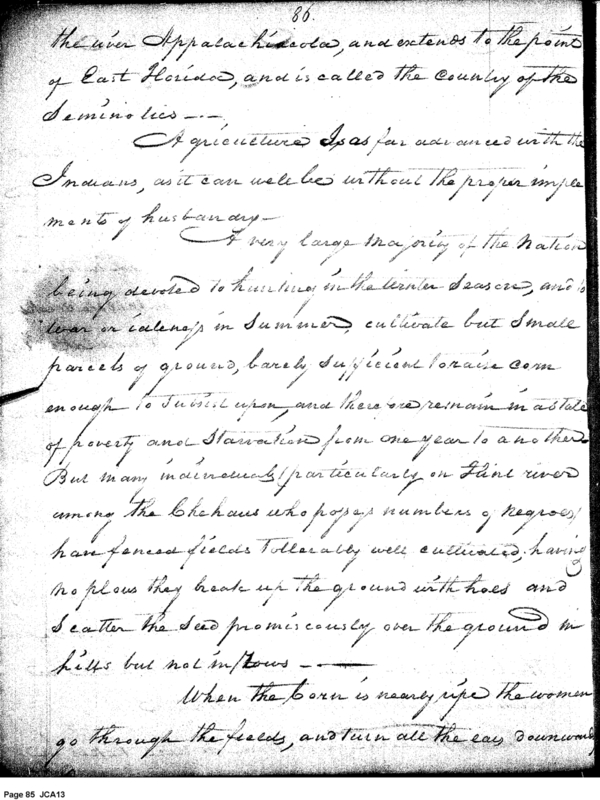 86.
the river Appalachicola, and extends to the point
of East Florida, and is called the Country of the
Seminolies —.—
Agriculture Is as far advanced with the
Indians, as it can well be without the proper imple
ments of husbandry —
A very large Majority of the Nation
being devoted to hunting in the Winter Season, and to
War or idleness in Summer, cultivate but Small
parcels of ground, barely sufficient to raise corn
enough to subsist upon, and therefore remain in a State
of poverty and Starvation from one year to another
But many individuals (particularly on Flint river
among the Chehaus who possess numbers of Negroes)
have fenced fields tollerally well cultivated, having
no plous they break up the ground with hoes and
Scatter the Seed promiscously over the ground in
hills but not in rows — . —
When the Corn is nearly ripe the women
go through the fields, and turn all the ears downwards
Page 85 JCA13